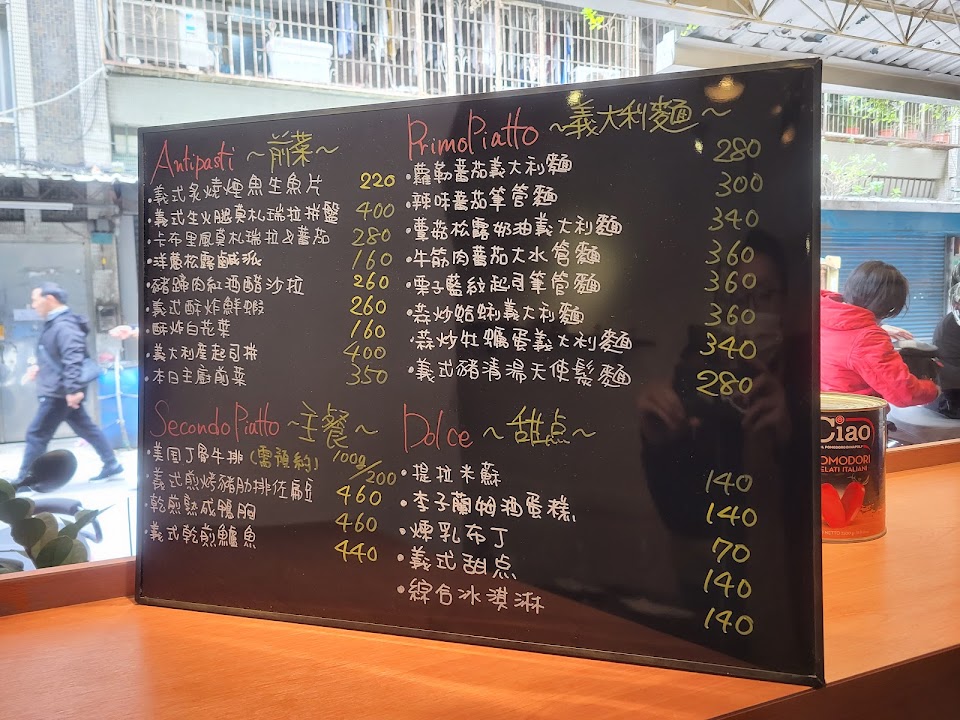 Antipasti ～前菜～
・義式炙燒煙魚生魚片 220
・義式生火腿莫札瑞拉拼盤 400
・卡布里風莫札瑞拉&番茄 280
・洋蔥松露鹹派 160
・豬蹄肉紅酒醋沙拉 260
・義式酥炸鮮蝦 260
・酥炸白花菜 160
・義大利產起司拼 400
・本日主廚前菜 350
Secondo Piatto ～主餐～
・美国丁骨牛排(需預約) 100g/200
・義式煎烤豬肋排佐扁豆 460
・乾煎熟成鴨胸 460
・義式乾煎鱸魚 440
Primo Piatto ～義大利麵～
・蘿勒番茄義大利麵 280
・辣味番茄筆管麵 300
・蕈菇松露奶油義大利麵 340
・牛筋肉番茄大水管麵 360
・栗子藍紋起司筆管麵 360
・蒜炒蛤蜊義大利麵 360
・蒜炒牡蠣蛋義大利麵 340
・義式豬清湯天使髮麵 280
Dolce ～甜点～
・提拉米蘇 140
・李子蘭姆酒蛋糕 140
・煉乳布丁 70
・義式甜点 140
・綜合冰淇淋 140
Ciao
POMODORI
PELATI ITALIANI